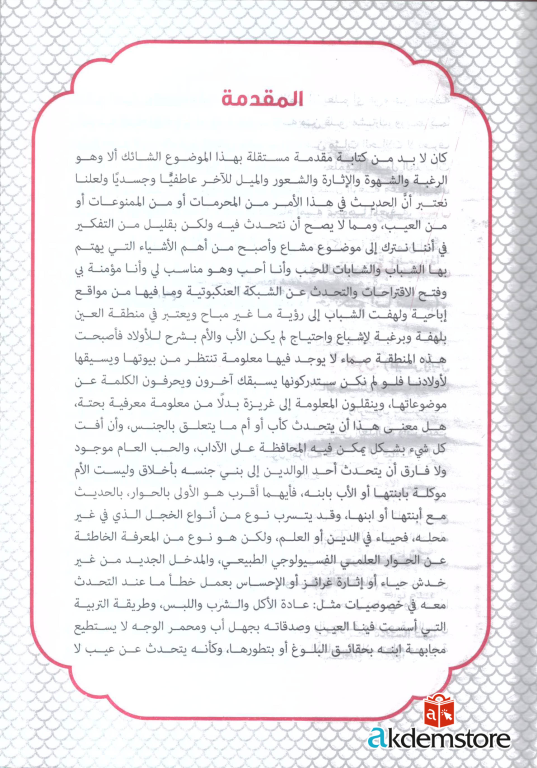 المقدمة
كان لا بد من كتابة مقدمة مستقلة بهذا الموضوع الشائك ألا وهو
الرغبة والشهوة والإثارة والشعور والميل للآخر عاطفيًّا وجسديًا ولعلنا
نعتبر أنَّ الحديث في هذا الأمر من المحرمات أو من الممنوعات أو
من العيب، ومما لا يصح أن نتحدث فيه ولكن بقليل من التفكير
في أننا نترك إلى موضوع مشاع وأصبح من أهم الأشياء التي يهتم
بها الشباب والشابات للحب وأنا أحب وهو مناسب لي وأنا مؤمنة بي
وفتح الاقتراحات والتحدث عن الشبكة العنكبوتية وما فيها من مواقع
إباحية ولهفت الشباب إلى رؤية ما غير مباح ويعتبر في منطقة العين
بلهفة وبرغبة لإشباع واحتياج لم يكن الأب والأم بشرح للأولاد فأصبحت
هذه المنطقة صماء لا يوجد فيها معلومة تنتظر من بيوتها ويسيقها
لأولادنا فلو لم نكن ستدركونها يسبقك آخرون ويحرفون الكلمة عن
موضوعاتها، وينقلون المعلومة إلى غريزة بدلًا من معلومة معرفية بحتة،
هل معنى هذا أن يتحدث كأب أو أم ما يتعلق بالجنس، وأن أفت
كل شيء بشكل يمكن فيه المحافظة على الآداب، والحب العام موجود
ولا فارق أن يتحدث أحد الوالدين إلى بني جنسه بأخلاق وليست الأم
موكلة بابنتها أو الأب بابنه، فأيهما أقرب هو الأولى بالحوار، بالحديث
مع أبنتها أو ابنها، وقد يتسرب نوع من أنواع الخجل الذي في غير
محله، فحياء في الدين أو العلم، ولكن هو نوع من المعرفة الخاطئة
عن الحوار العلمي الفسيولوجي الطبيعي، والمدخل الجديد من غير
خدش حياء أو إثارة غرائز أو الإحساس بعمل خطأ ما عند التحدث
معه في خصوصيات مثل: عادة الأكل والشرب واللبس، وطريقة التربية
التي أسست فينا العيب وصدقاته بجهل أب ومحمر الوجه لا يستطيع
مجابهة ابنه بحقائق البلوغ أو بتطورها، وكأنه يتحدث عن عيب لا
akdemstore